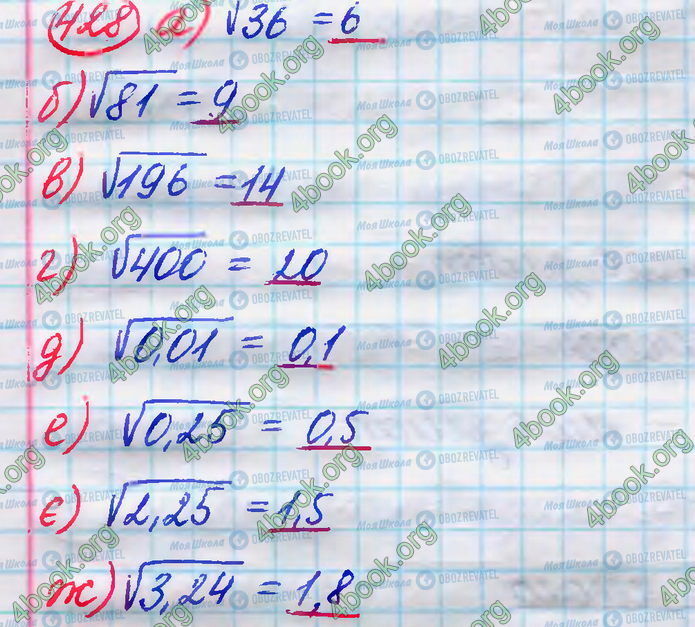 428 а) √36 = 6
б) √81 = 9
в) √196 = 14
г) √400 = 20
д) √0,01 = 0,1
е) √0,25 = 0,5
є) √2,25 = 1,5
ж) √3,24 = 1,8
4book.org
Моя Школа OBOZREVATEL